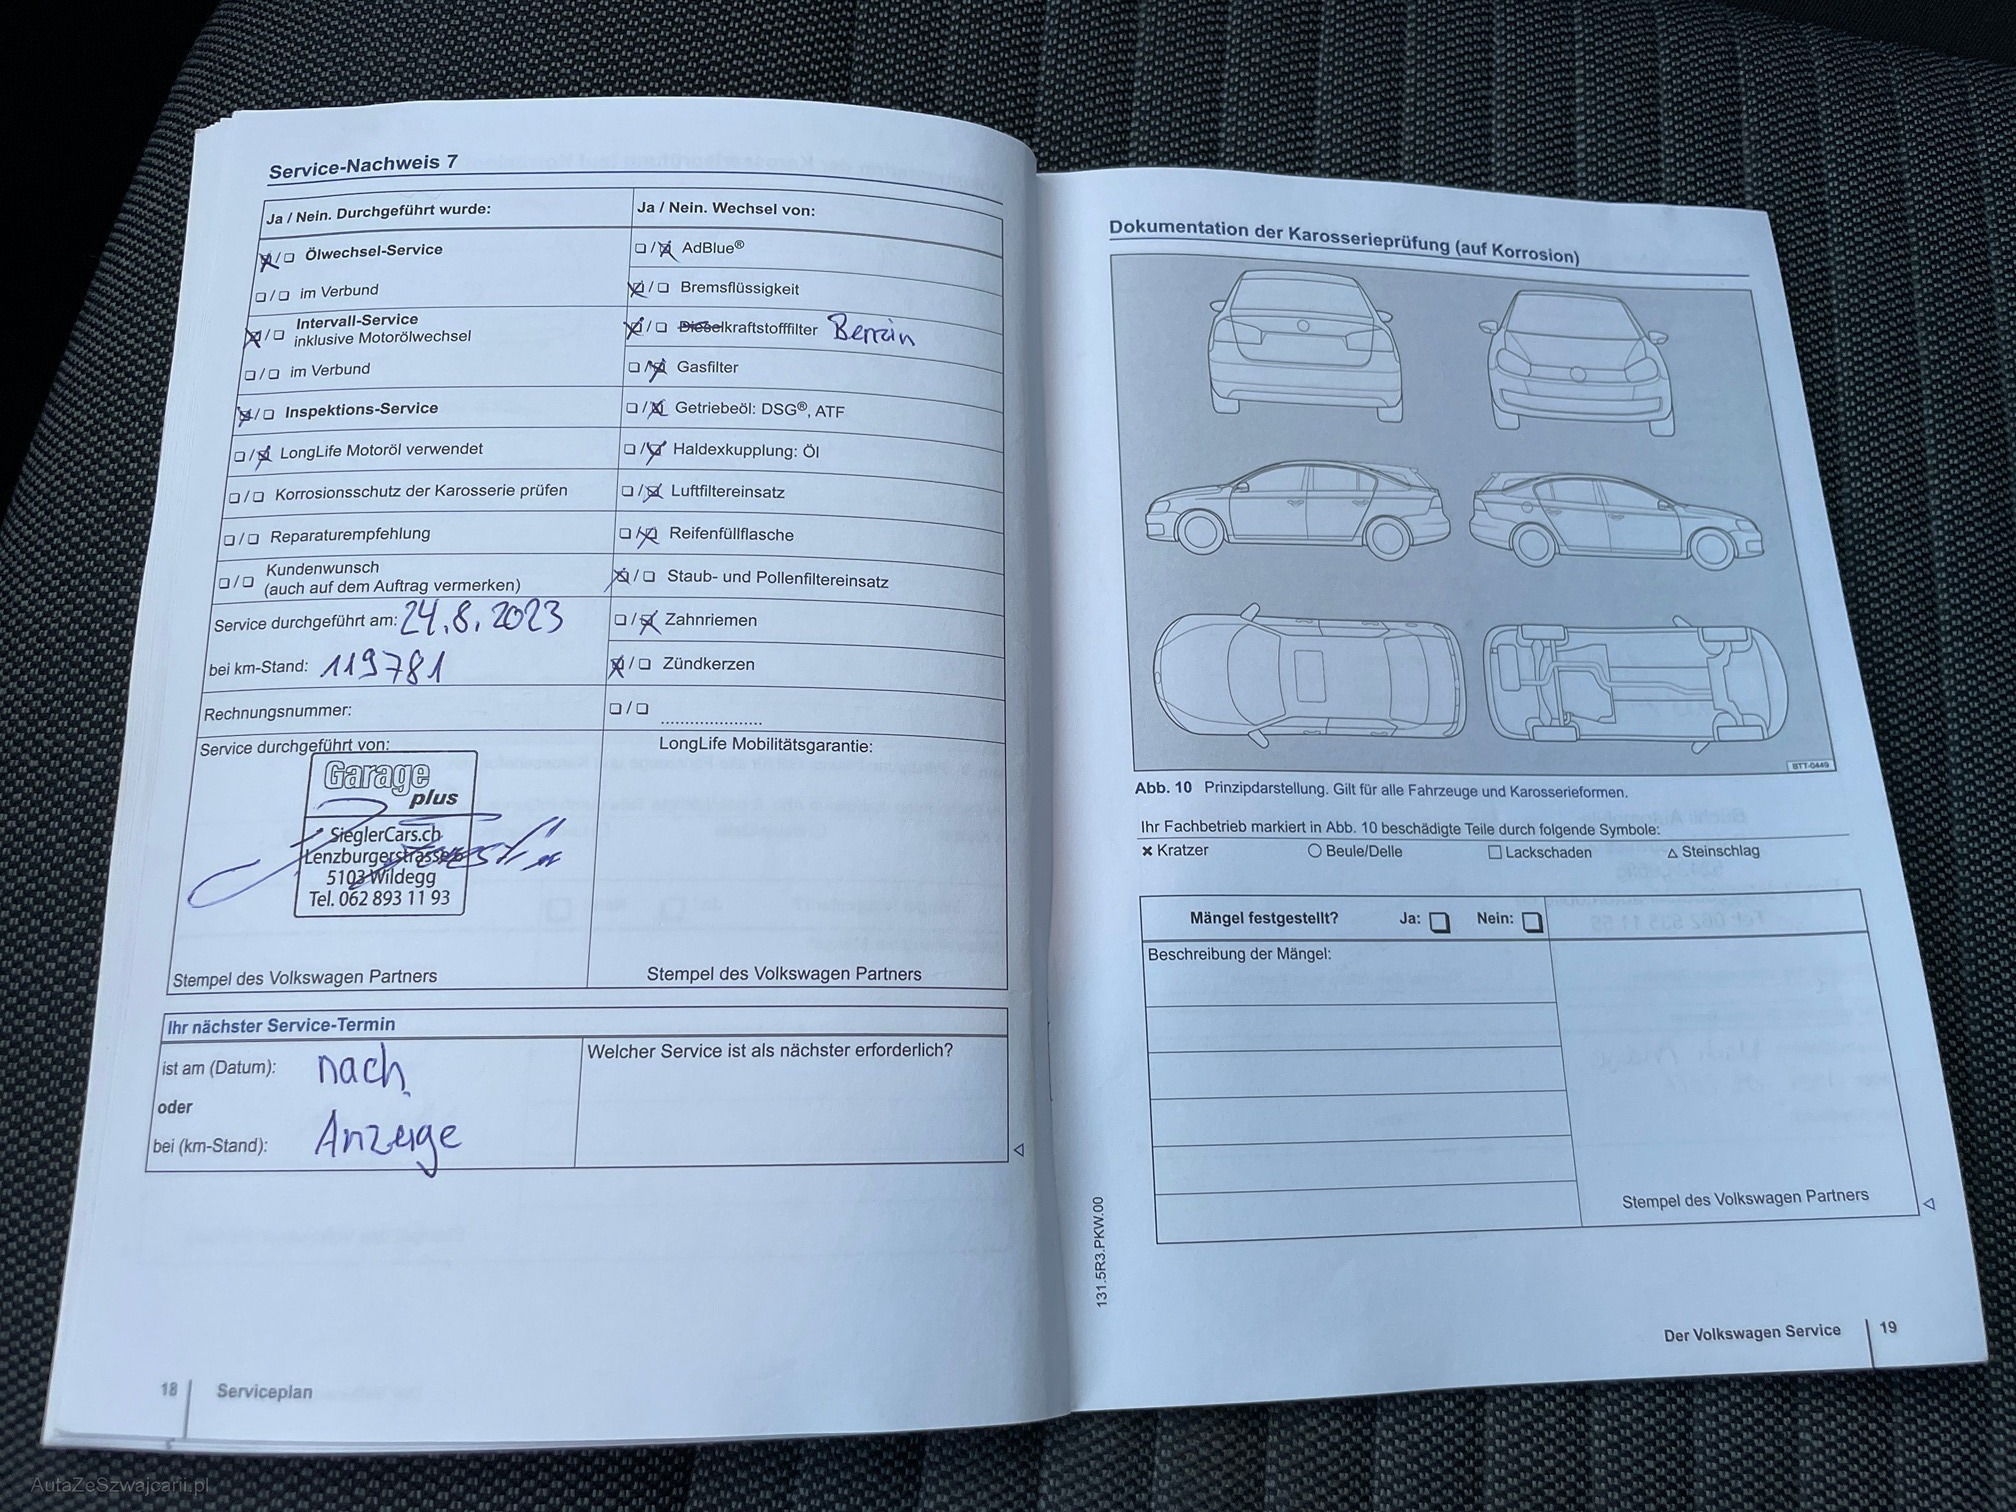 Service-Nachweis 7
Ja / Nein. Durchgeführt wurde:
Ölwechsel-Service
im Verbund
Intervall-Service
inklusive Motorölwechsel
im Verbund
Inspektions-Service
LongLife Motoröl verwendet
Korrosionsschutz der Karosserie prüfen
Reparaturempfehlung
Kundenwunsch
(auch auf dem Auftrag vermerken)
Service durchgeführt am: 24.8.2023
bei km-Stand: 119781
Rechnungsnummer:
Service durchgeführt von:
Garage
plus
SieglerCars.ch
Lenzburgerstrasse
5103 Wildegg
Tel. 062 893 11 93
Stempel des Volkswagen Partners
Ja / Nein. Wechsel von:
AdBlue®
Bremsflüssigkeit
Dieselkraftstofffilter Benzin
Gasfilter
Getriebeöl: DSG®, ATF
Haldexkupplung: Öl
Luftfiltereinsatz
Reifenfüllflasche
Staub- und Pollenfiltereinsatz
Zahnriemen
Zündkerzen
LongLife Mobilitätsgarantie:
Stempel des Volkswagen Partners
Ihr nächster Service-Termin
ist am (Datum): nach
oder
bei (km-Stand): Anzeige
Welcher Service ist als nächster erforderlich?
18 Serviceplan
Dokumentation der Karosserieprüfung (auf Korrosion)
BTT-0449
Abb. 10 Prinzipdarstellung. Gilt für alle Fahrzeuge und Karosserieformen.
Ihr Fachbetrieb markiert in Abb. 10 beschädigte Teile durch folgende Symbole:
× Kratzer ○ Beule/Delle □ Lackschaden △ Steinschlag
Mängel festgestellt? Ja: Nein:
Beschreibung der Mängel:
Stempel des Volkswagen Partners
131.5R3.PKW.00
Der Volkswagen Service 19
AutaZeSzwajcarii.pl